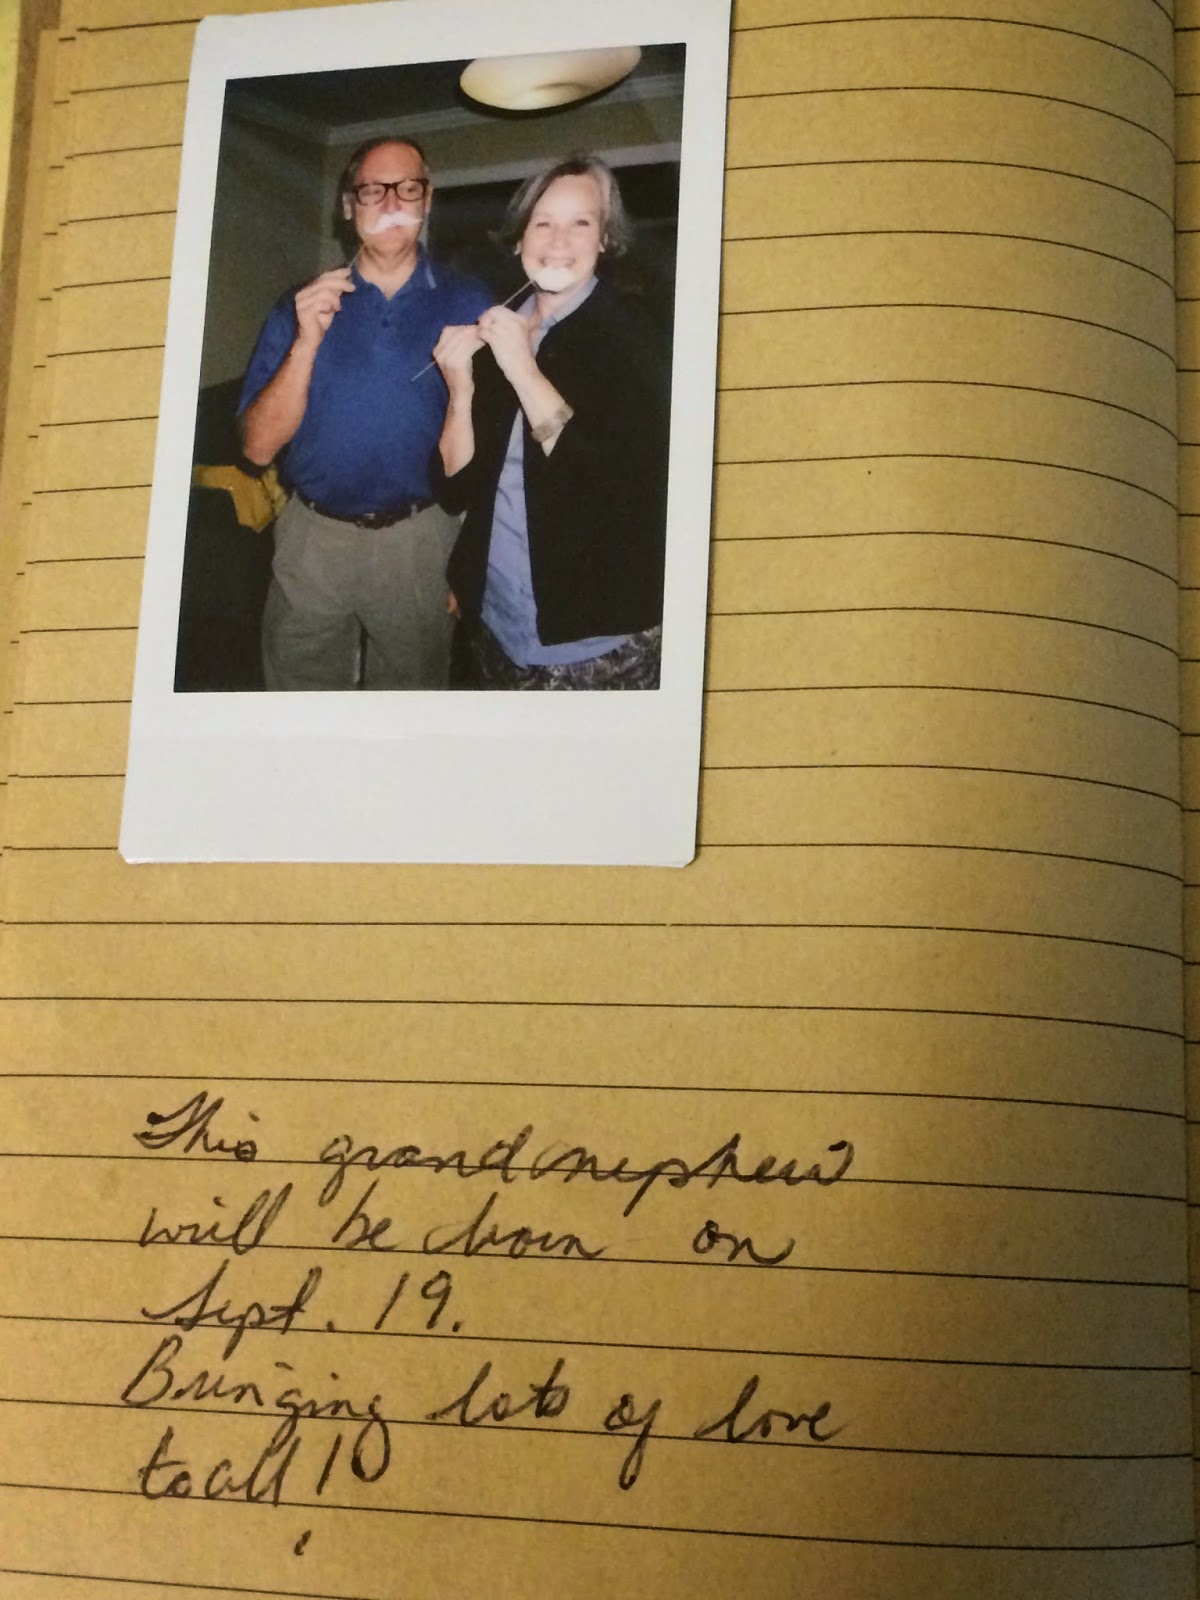 This grand nephew
will be born on
Sept. 19.
Bringing lots of love
to all !